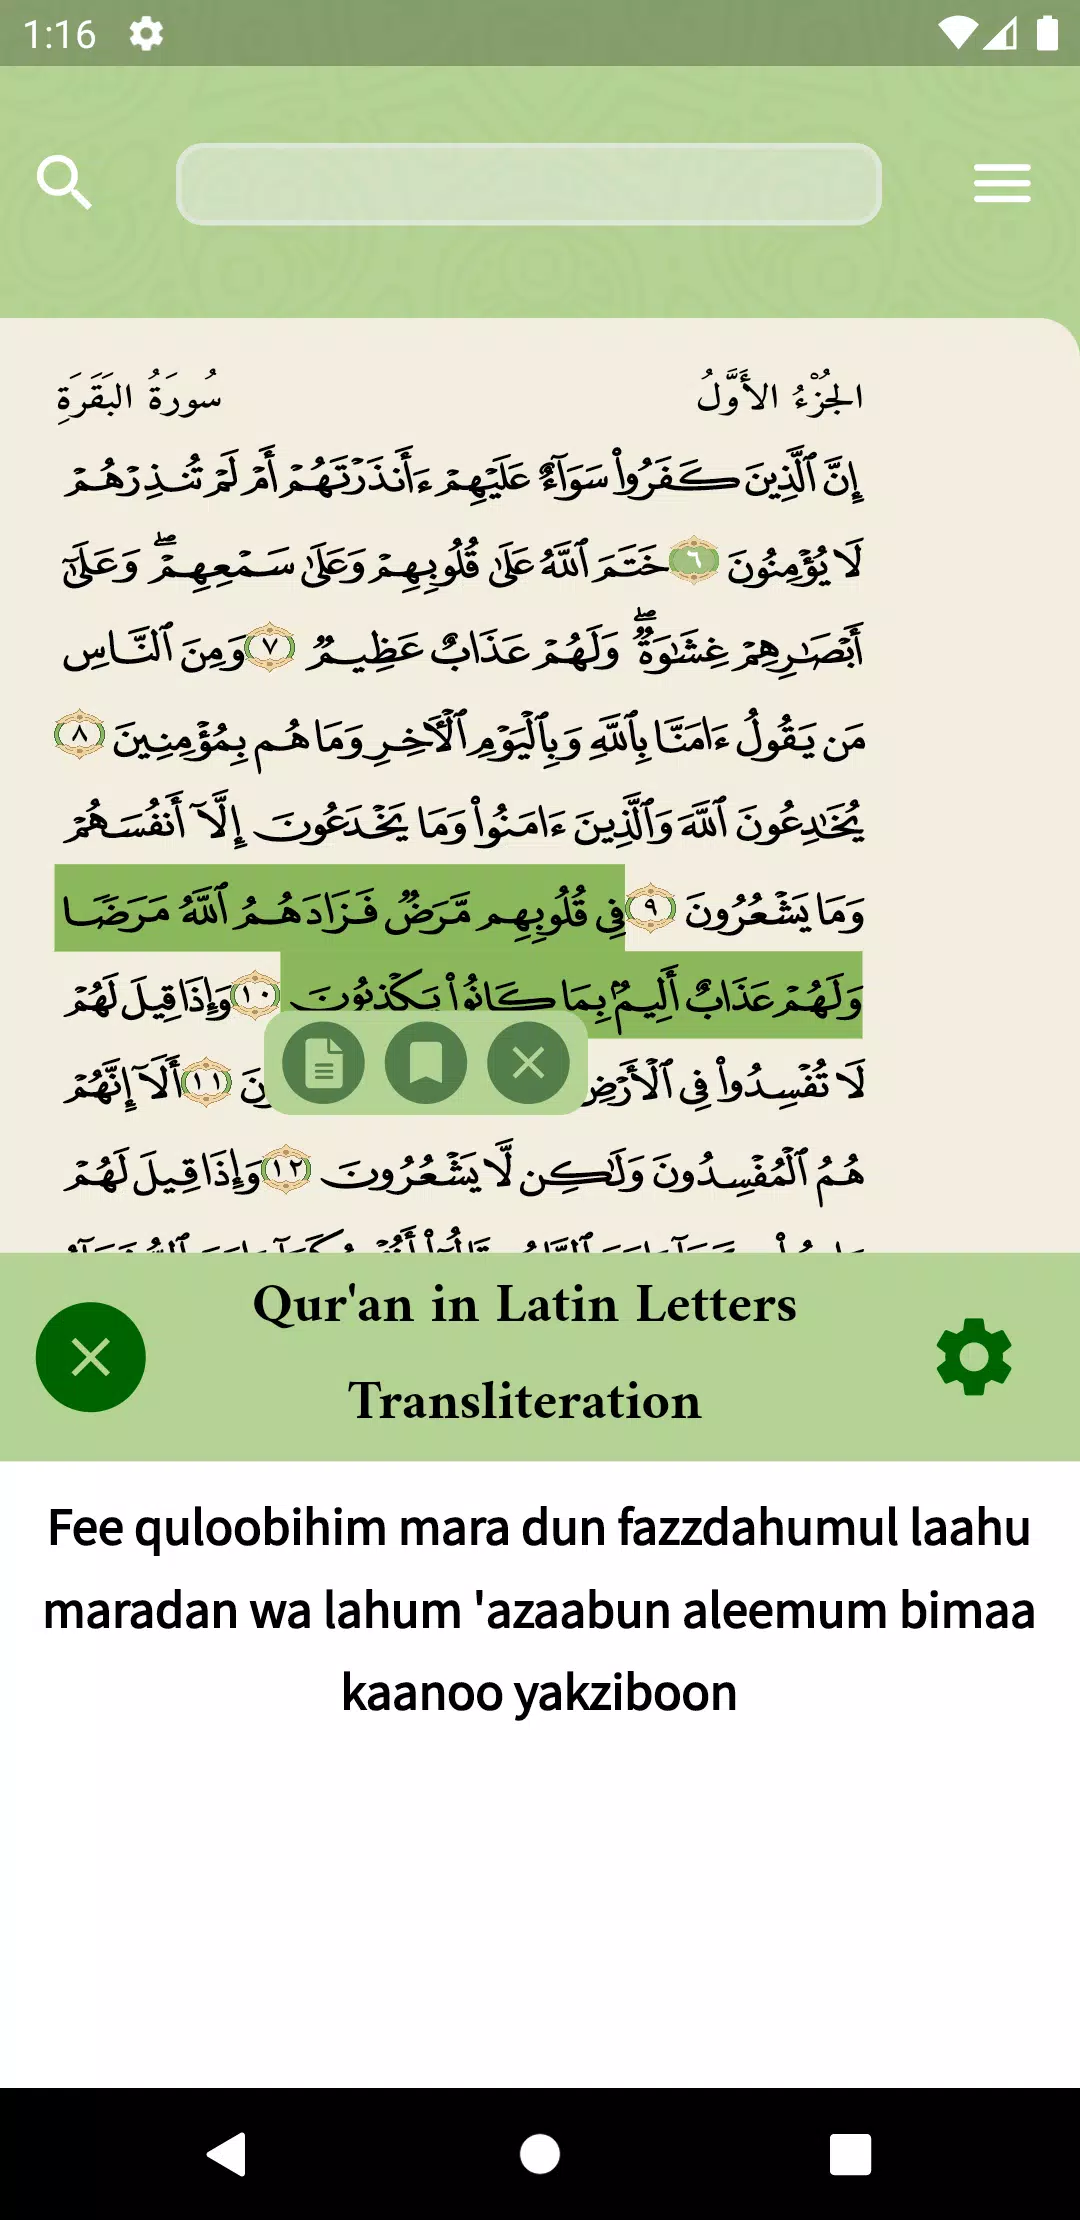 1:16
الجُزْءُ الأَوَّلُ
سُورَةُ البَقَرَةِ
إِنَّ ٱلَّذِينَ كَفَرُوا۟ سَوَآءٌ عَلَيْهِمْ ءَأَنذَرْتَهُمْ أَمْ لَمْ تُنذِرْهُمْ
لَا يُؤْمِنُونَ ٦ خَتَمَ ٱللَّهُ عَلَىٰ قُلُوبِهِمْ وَعَلَىٰ سَمْعِهِمْ ۖ وَعَلَىٰٓ
أَبْصَـٰرِهِمْ غِشَـٰوَةٌ ۖ وَلَهُمْ عَذَابٌ عَظِيمٌ ٧ وَمِنَ ٱلنَّاسِ
مَن يَقُولُ ءَامَنَّا بِٱللَّهِ وَبِٱلْيَوْمِ ٱلْـَٔاخِرِ وَمَا هُم بِمُؤْمِنِينَ ٨
يُخَـٰدِعُونَ ٱللَّهَ وَٱلَّذِينَ ءَامَنُوا۟ وَمَا يَخْدَعُونَ إِلَّآ أَنفُسَهُمْ
وَمَا يَشْعُرُونَ ٩ فِى قُلُوبِهِم مَّرَضٌ فَزَادَهُمُ ٱللَّهُ مَرَضًا
وَلَهُمْ عَذَابٌ أَلِيمٌۢ بِمَا كَانُوا۟ يَكْذِبُونَ ١٠ وَإِذَا قِيلَ لَهُمْ
لَا تُفْسِدُوا۟ فِى ٱلْأَرْضِ ١١ أَلَآ إِنَّهُمْ
هُمُ ٱلْمُفْسِدُونَ وَلَـٰكِن لَّا يَشْعُرُونَ ١٢ وَإِذَا قِيلَ لَهُمْ
Qur'an in Latin Letters
Transliteration
Fee quloobihim mara dun fazzdahumul laahu
maradan wa lahum 'azaabun aleemum bimaa
kaanoo yakziboon